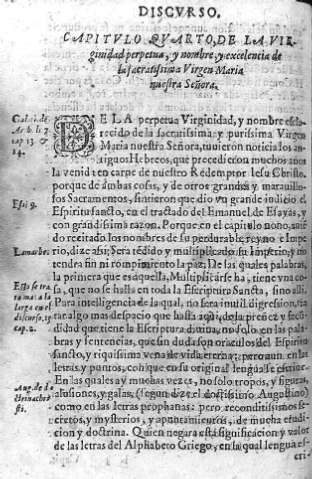 DISCVRSO.
CAPITVLO QVARTO, DE LA VIR-
ginidad perpetua, y nombre, y excelencia de
la sacratissima Virgen Maria
nuestra Señora.
DE LA perpetua Virginidad, y nombre escla-
recido de la sacratissima, y purissima Virgen
Maria nuestra Señora, tuuieron noticia los an-
tiguos Hebreos, que precedieron muchos años
la venida en carne de nuestro Redemptor Iesu Christo,
porque de ambas cosas, y de otros grandes y marauillo-
sos Sacramentos, sintieron que dio vn grande indicio el
Espiritu sancto, en el tractado del Emanuel, de Esayas, y
con grandissima razon. Porque en el capitulo nono,
recitado los nombres de su perdurable reyno e Impe-
rio, dize assi; Sera tedido y multiplicado su Imperio, y no
tendra fin ni rompimiento la paz. De las quales palabras,
la primera que es aquella, Multiplicarse ha, tiene vna co-
sa, que no se halla en toda la Escriptura Sancta, sino alli.
Para intelligencia de la qual, no sera inutil digression,
tratar algo mas despacio que hasta aqui, de la preñez y fecun-
didad que tiene la Escriptura diuina, no solo en las pala-
bras y sentencias, que sin duda son oraculos del Espiritu
sancto, y riquissima vena de vida eterna; pero aun en las
letras y puntos, con que en su original lengua se escriue.
En las quales ay muchas vezes, no solo tropos, y figuras,
alusiones, y galas, (segun dize el doctissimo Augustino)
como en las letras prophanas: pero reconditissimos se-
cretos, y mysterios, y apuntamientos, de mucha erudi-
cion y doctrina. Quien negara esta significacion y valor
de las letras del Alphabeto Griego, en la qual lengua es-
cri-
Esai 9.
Lamarbe.
Esto se tra
ta mas a la
larga en el
discurso,
cap. 2.
Aug. de do
ctrina chri-
sti.